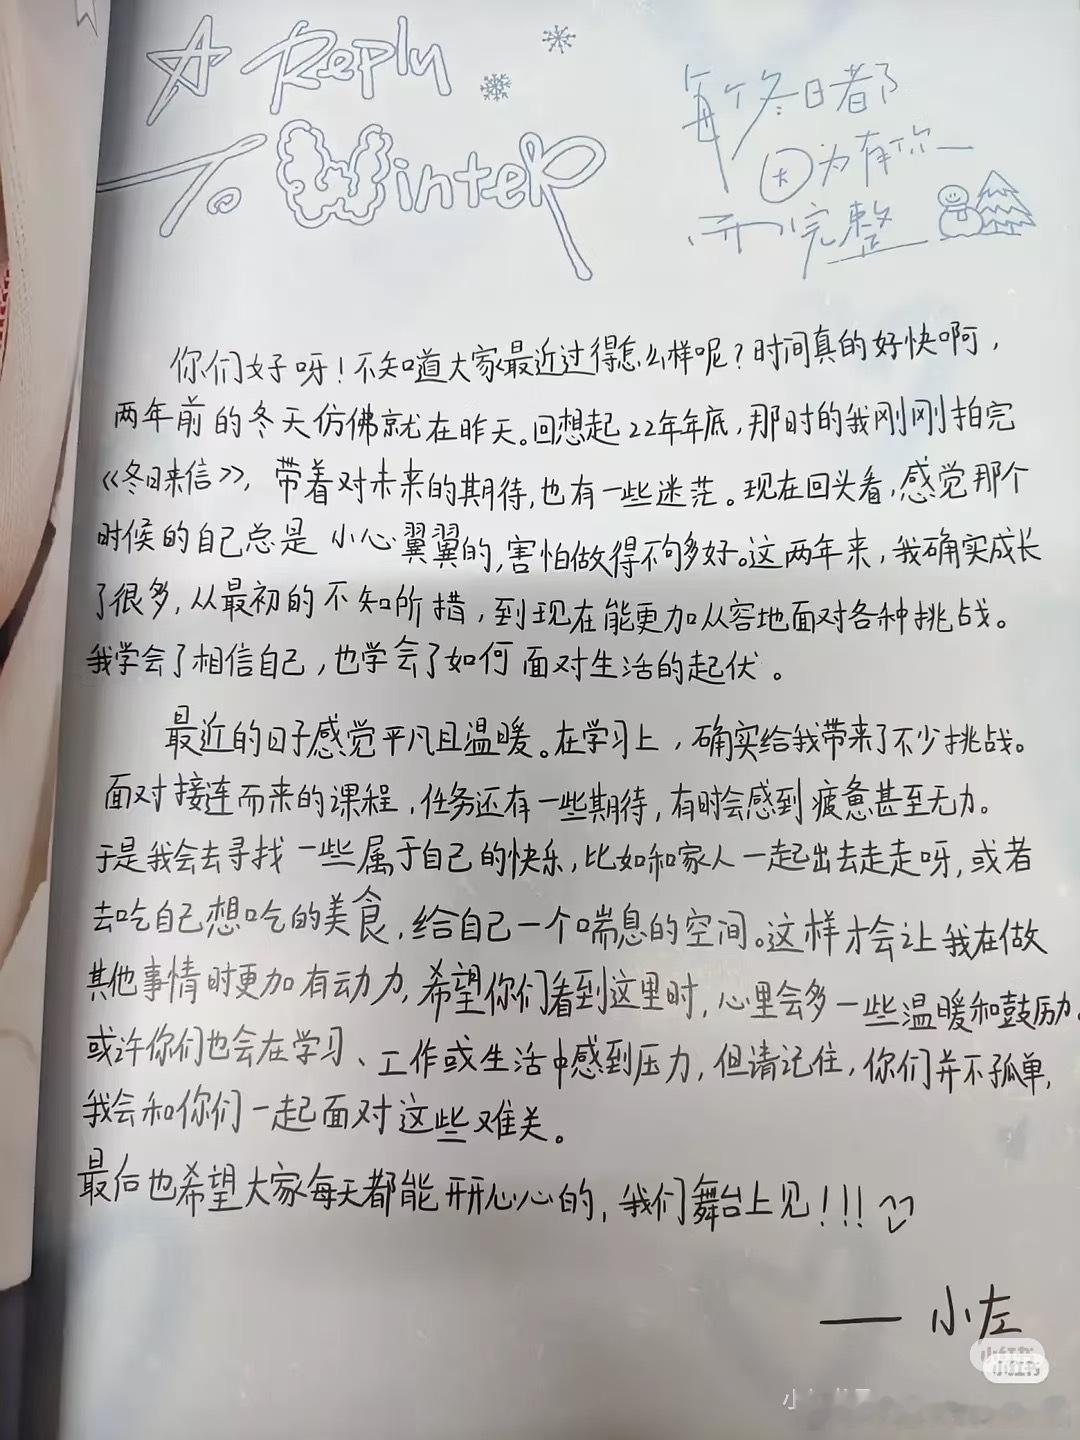 A Reply
To Winter
每个冬日都
因为有你
而完整
你们好呀！不知道大家最近过得怎么样呢？时间真的好快啊，
两年前的冬天仿佛就在昨天。回想起22年年底，那时的我刚刚拍完
《冬日来信》，带着对未来的期待，也有一些迷茫。现在回头看，感觉那个
时候的自己总是小心翼翼的，害怕做得不够多好。这两年来，我确实成长
了很多，从最初的不知所措，到现在能更加从容地面对各种挑战。
我学会了相信自己，也学会了如何面对生活的起伏。
最近的日子感觉平凡且温暖。在学习上，确实给我带来了不少挑战。
面对接连而来的课程，任务还有一些期待，有时会感到疲惫甚至无力。
于是我会去寻找一些属于自己的快乐，比如和家人一起出去走走呀，或者
去吃自己想吃的美食，给自己一个喘息的空间。这样才会让我在做
其他事情时更加有动力，希望你们看到这里时，心里会多一些温暖和鼓励。
或许你们也会在学习、工作或生活中感到压力，但请记住，你们并不孤单，
我会和你们一起面对这些难关。
最后也希望大家每天都能开开心心的，我们舞台上见！！！
——小左
小红书
小红书